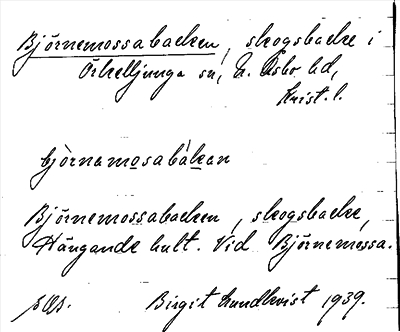 Björnemossabacken, skogsbacke i
Örkelljunga sn, N. Åsbo hd,
Krist. l.
bjö̀rnemosabàkan
Björnemossabacken, skogsbacke,
Hängande hult. Vid Björnemossa.
Birgit Lundkvist 1939.